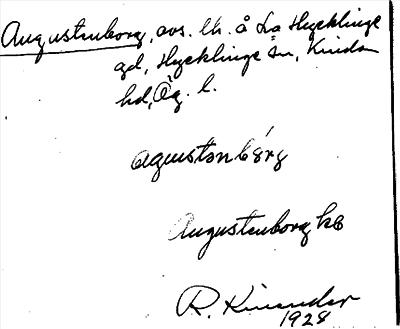 Augustenborg, avs. lh. å L:a Hycklinge
gd, Hycklinge sn, Kinda
hd, Ög. l.
agustɷnbórg
Augustenborg kb
R. Kinander
1928